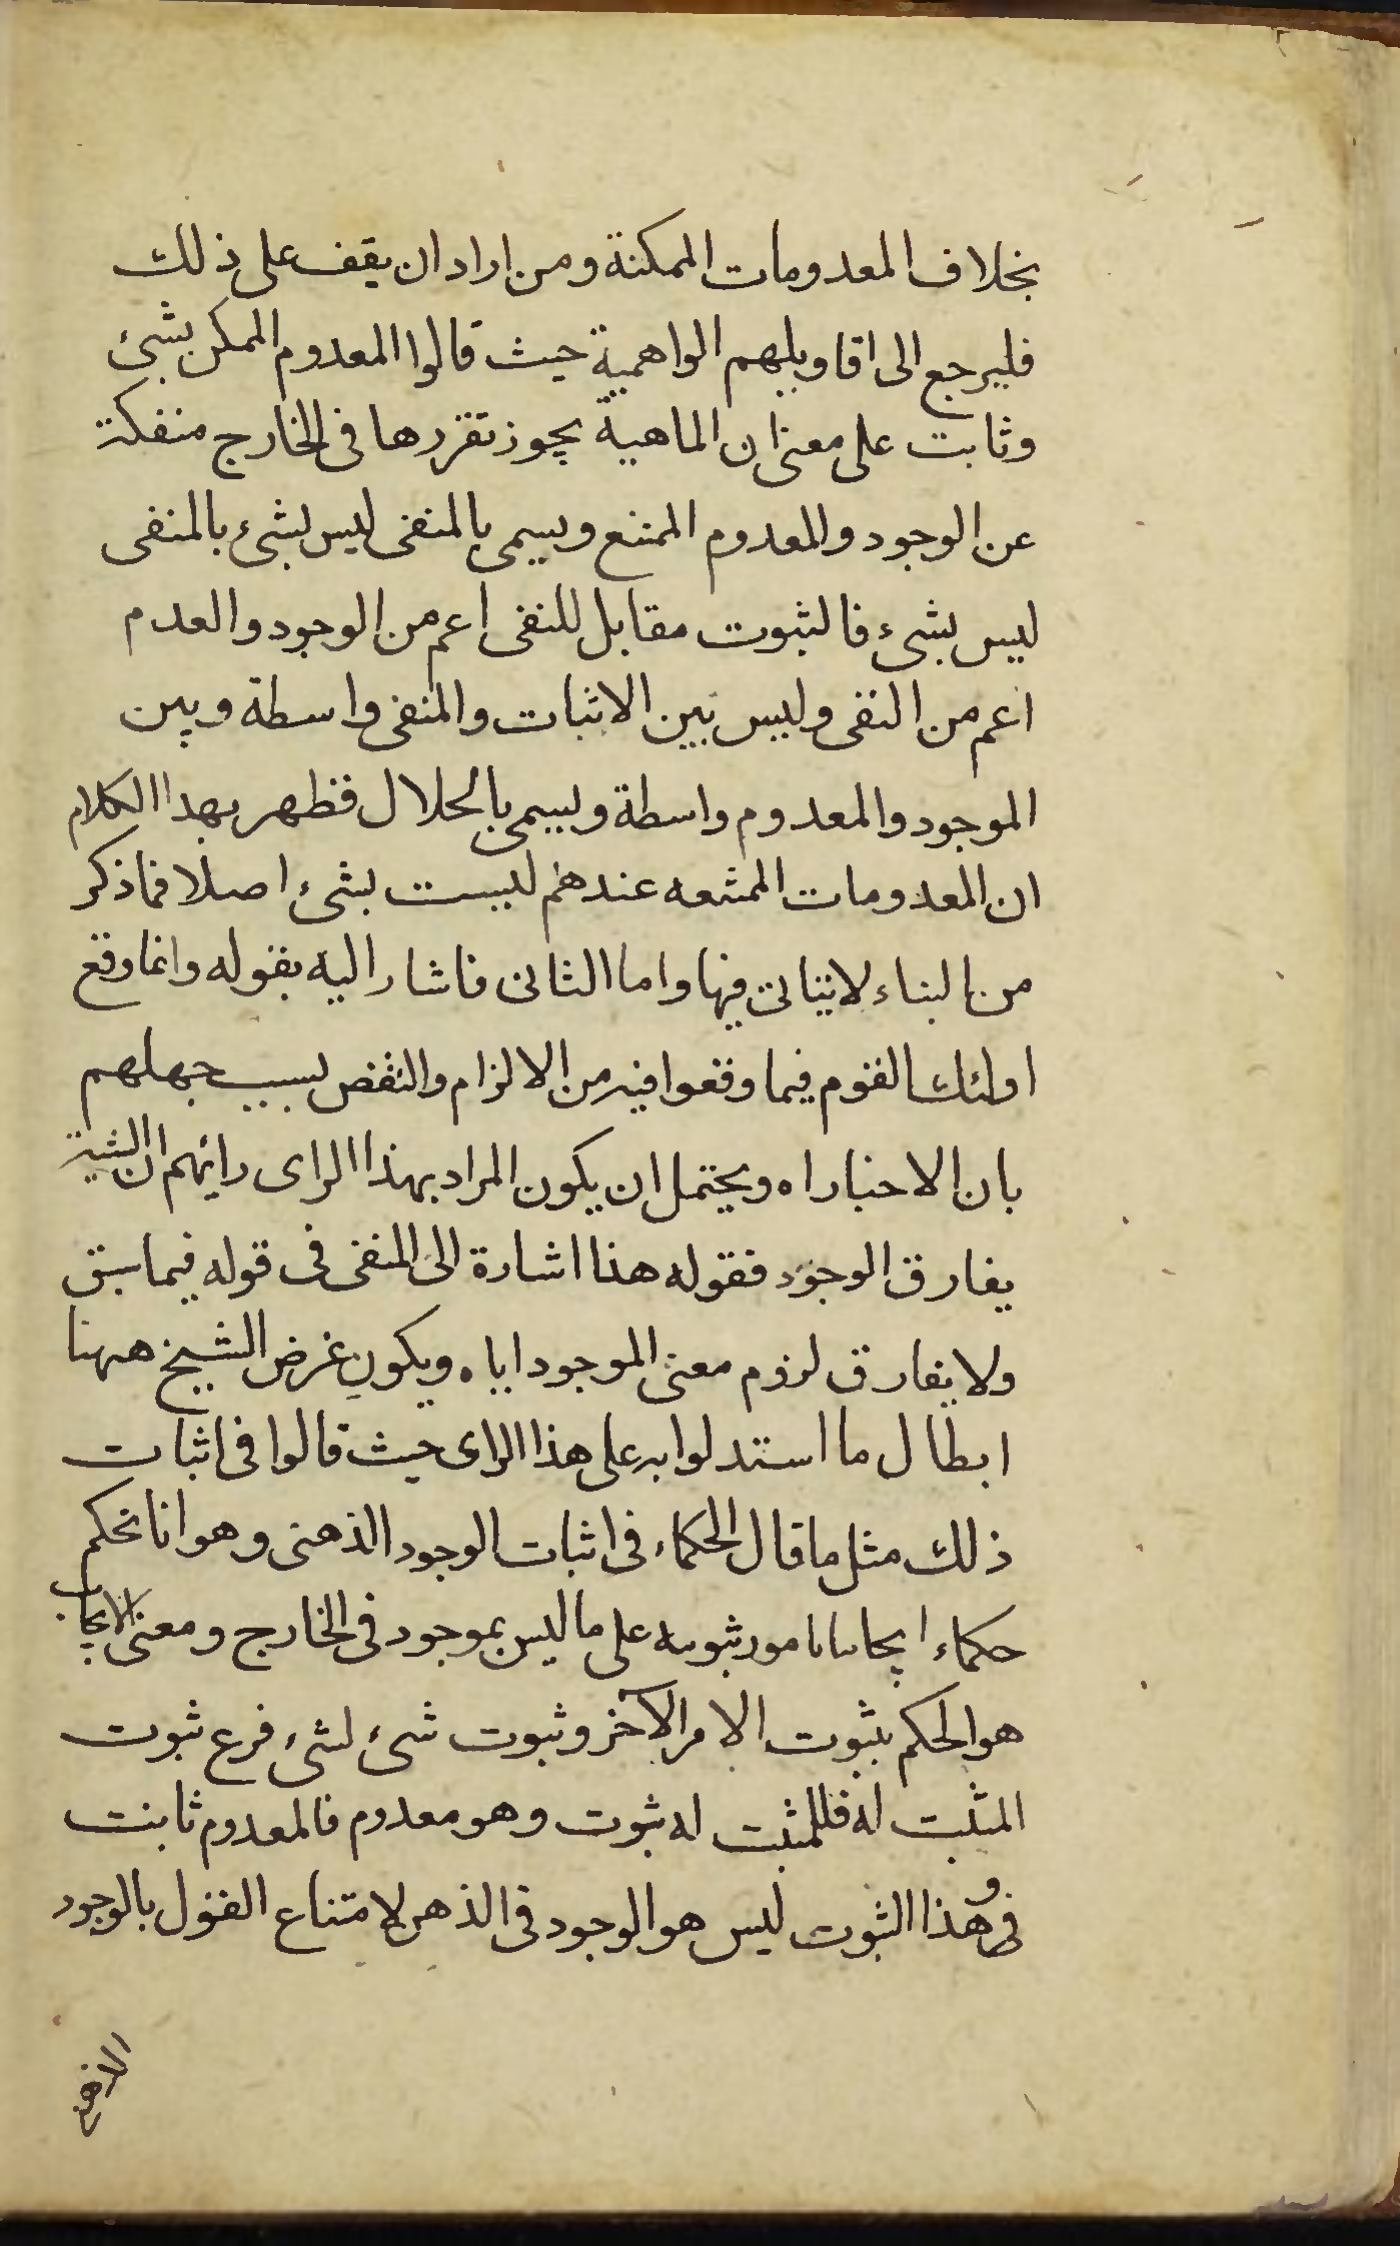 بخلاف المعدومات الممكنة ومن اراد ان يقف على ذلك
فليرجع الى اقاويلهم الواهمية حيث قالوا المعدوم الممكن بشئ
وثابت على معنى ان الماهية يجوز تقررها فى الخارج منفكة
عن الوجود والمعدوم الممتنع ويسمى بالمنفى ليس بشئ بالمنفى
ليس بشىء فالثبوت مقابل للنفى اعم من الوجود والعدم
اعم من النفى وليس بين الاثبات والمنفى واسطة وبين
الموجود والمعدوم واسطة ويسمى بالحلال فظهر بهدا الكلام
ان المعدومات الممتنعه عندهم ليست بشئ اصلا فما ذكر
من البناء لا يتاتى فيها واما الثانى فاشار اليه بقوله وانما وقع
اولئك القوم فيما وقعوا فيه من الالزام والنقض بسبب جهلهم
بان الاخبار اه ويحتمل ان يكون المراد بهذا الراى رايهم ان الشيئية
يفارق الوجود فقوله هذا اشارة الى المنفى فى قوله فيما سبق
ولا يفارق لزوم معنى الموجود اياه ويكون غرض الشيخ ههنا
ابطال ما استدلوا به على هذا الراى حيث قالوا فى اثبات
ذلك مثل ما قال الحكماء فى اثبات الوجود الذهنى وهو انا نحكم
حكماء ايجابيا بامور ثبوتيه على ما ليس بموجود فى الخارج ومعنى الايجاب
هو الحكم بثبوت الامر الآخر وثبوت شئ لشئ فرع ثبوت
المثبت له فللمثبت له ثبوت وهو معدوم فالمعدوم ثابت
فى وهذا الثبوت ليس هو الوجود فى الذهن لامتناع القول بالوجود
الذهنى